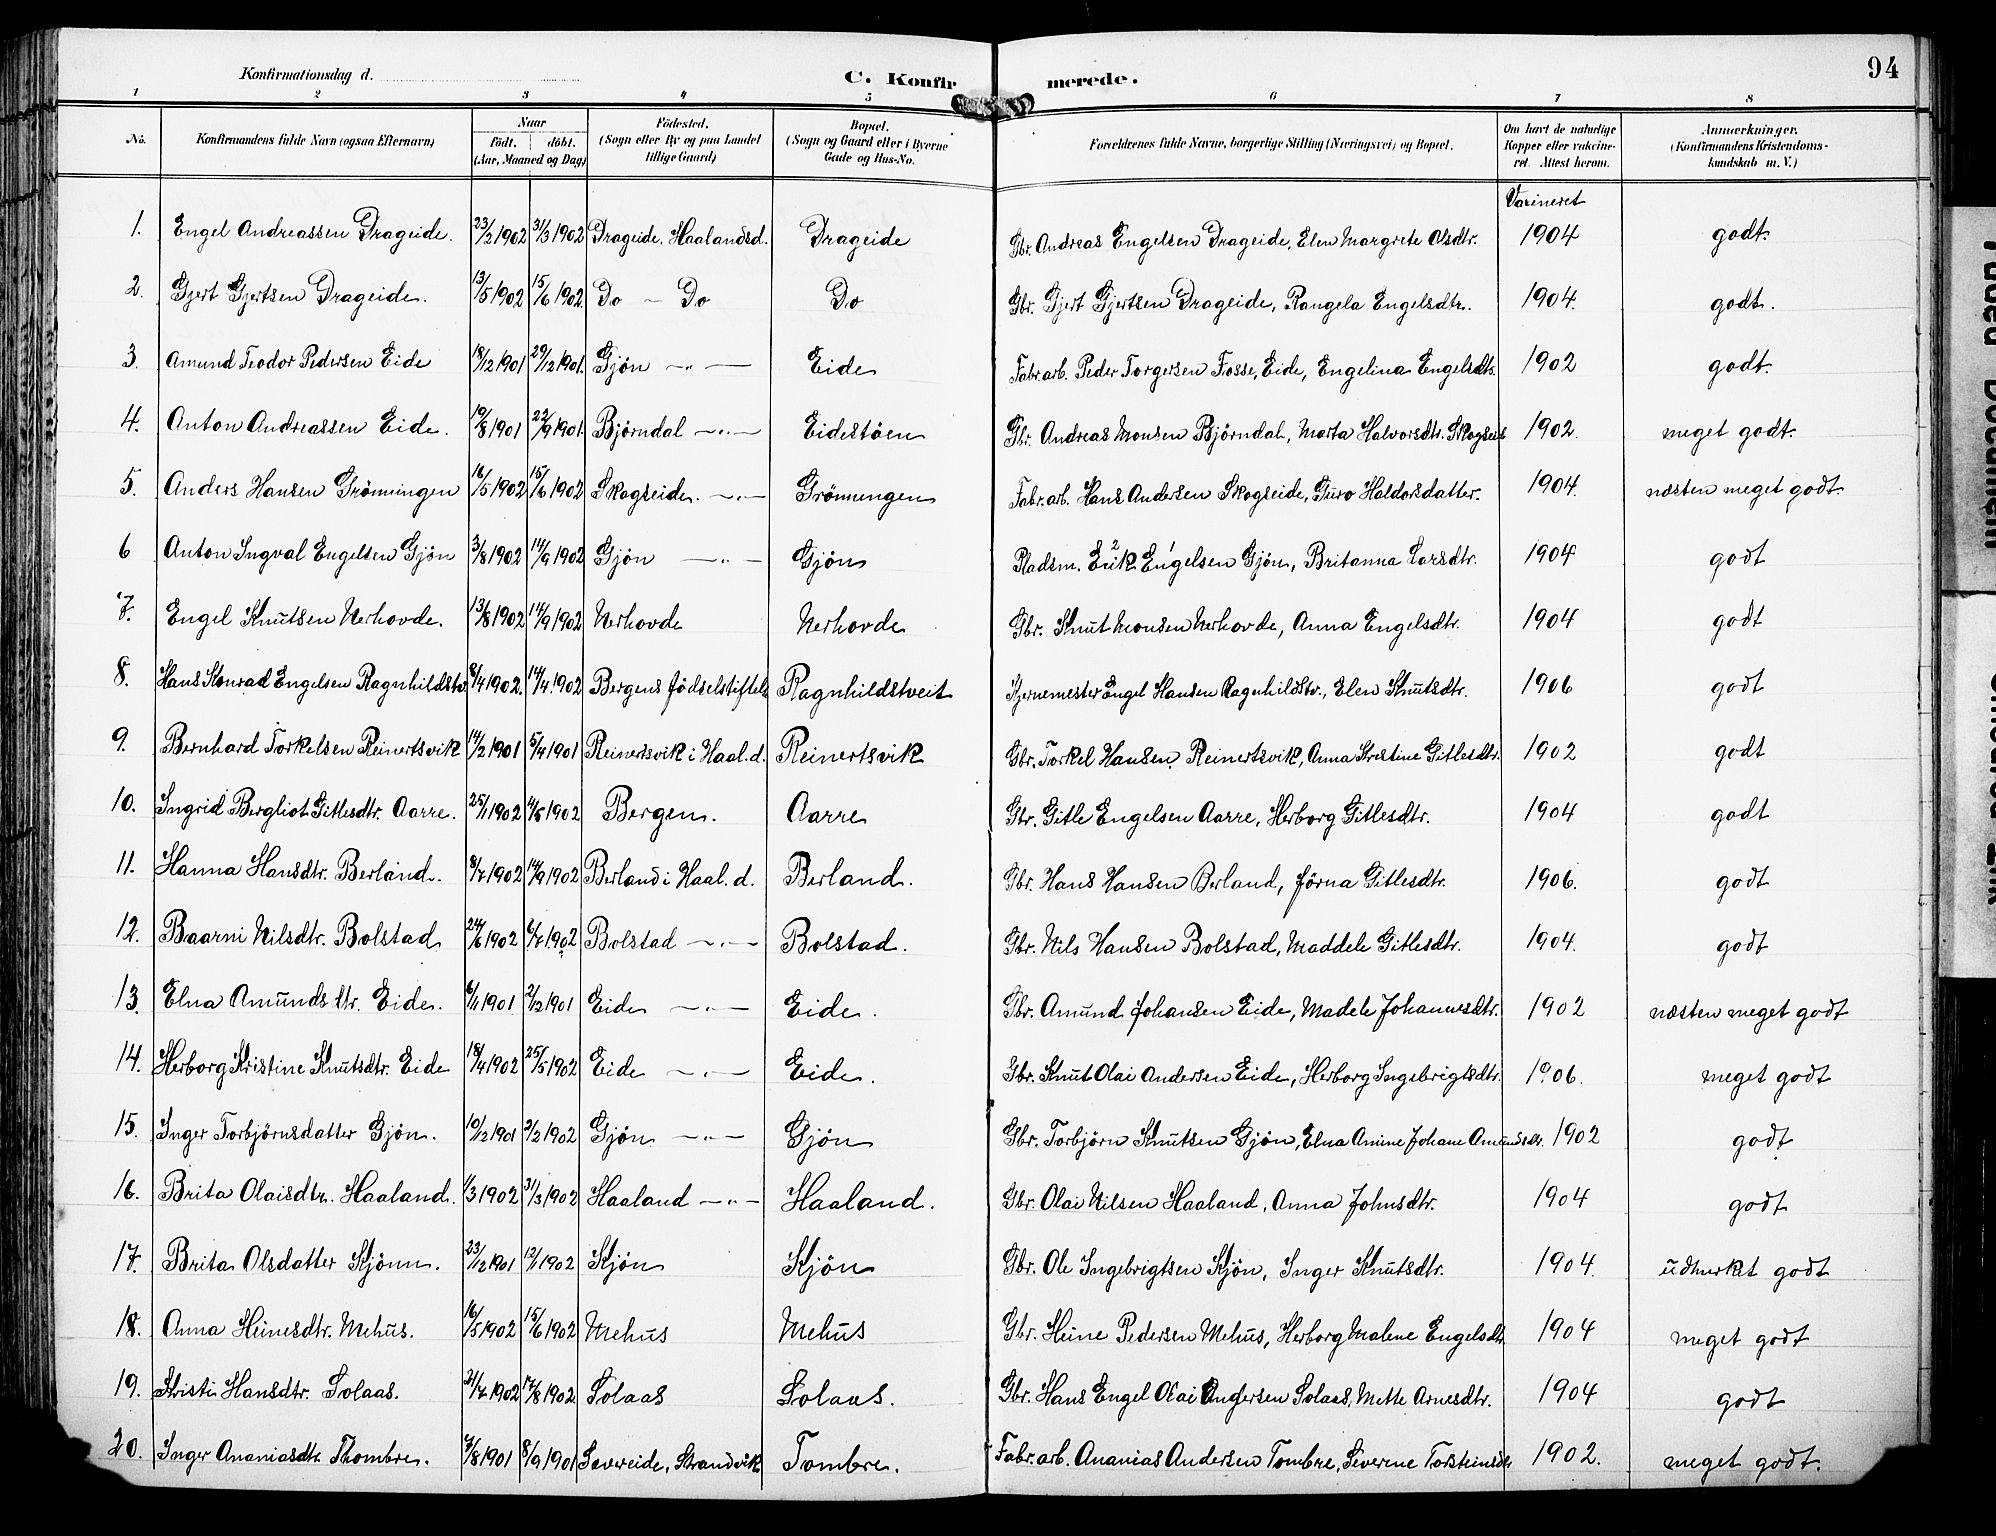 Konfirmationsdag d.
C. Konfirmerede.
94
1 2 3 4 5 6 7 8
No. Konfirmandens fulde Navn (ogsaa Efternavn) Naar født. døbt. (Aar, Maaned og Dag) Fødested. (Sogn eller By og paa Landet tillige Gaard) Bopæl. (Sogn og Gaard eller i Byerne Gade og Hus-No. Forældrenes fulde Navne, borgerlige Stilling (Næringsvei) og Bopæl. Om havt de naturlige Kopper eller vakcineret. Attest herom. Anmærkninger. (Konfirmandens Kristendomskundskab m. V.)
Vaxineret
1. Engel Andreassen Drageide. 23/2 1902 31/3 1902 Drageide, Haalandsd. Drageide Gbr. Andreas Engelsen Drageide, Elen Margrete Olsdtr. 1904 godt.
2. Gjert Gjertsen Drageide. 13/5 1902 15/6 1902 Do - Do Do Gbr. Gjert Gjertsen Drageide, Rangela Engelsdtr. 1904. godt.
3. Amund Teodor Pedersen Eide 18/12 1901 29/12 1901. Gjøn -"- Eide Fabr.arb. Peder Torgersen Fosse, Eide, Engelina Engelsdtr. 1902 godt.
4. Anton Andreassen Eide. 19/8 1901 22/9 1901. Bjørndal -"- Eidestøen Gbr. Andreas Monsen Bjørndal, Marta Halvorsdtr. Skogseid 1902. meget godt.
5. Anders Hansen Grønningen 16/5 1902 15/6 1902 Skogseide. -"- Grønningen Fabr.arb. Hans Andersen Skogseide, Guro Haldorsdatter. 1904. næsten meget godt.
6 Anton Ingval Engelsen Gjøn 3/8 1902 14/9 1902 Gjøn -"- Gjøn Pladsm. Erik 2 Engelsen 1 Gjøn, Britanna Larsdtr. 1904 godt
7. Engel Knutsen Nerhovde. 13/8 1902 14/9 1902 Nerhovde Nerhovde Gbr. Knut Monsen Nerhovde, Anna Engelsdtr. 1904 godt
8. Hans Konrad Engelsen Ragnhildstv. 8/4 1902. 14/4 1902 Bergens fødselstiftels Ragnhildstveit Kjernemester Engel Hansen Ragnhildstv., Elen Knutsdtr. 1906 godt
9. Bernhard Torkelsen Reinertsvik 14/2 1901 5/4 1901 Reinertsvik i Haal.d. Reinertsvik Gbr. Torkel Hansen Reinertsvik, Anna Kristine Gitlesdtr. 1902 godt
10. Ingrid Bergliot Gitlesdtr. Aarre. 25/1 1902 4/5 1902 Bergen. Aarre Gbr. Gitle Engelsen Aarre, Herborg Gitlesdtr. 1904 godt
11. Hanna Hansdtr. Berland. 8/7 1902 14/9 1902 Berland i Haal.d. Berland. Gbr. Hans Hansen Berland, Jørna Gitlesdtr. 1906. godt
12. Baarni Nilsdtr. Bolstad 24/6 1902 6/7 1902 Bolstad -"- Bolstad. Gbr. Nils Hansen Bolstad, Maddele Gitlesdtr. 1904. godt
13. Elna Amundsdtr. Eide. 6/11 1901 2/12 1901 Eide -"- Eide. Gbr. Amund Johansen Eide, Madele Johannesdtr. 1902 næsten meget godt
14. Herborg Kristine Knutsdtr. Eide 18/4 1902 25/5 1902 Eide -"- Eide. Gbr. Knut Olai Andersen Eide, Herborg Ingebrigtsdtr. 1906. meget godt
15. Inger Torbjørnsdatter Gjøn. 10/12 1901 2/2 1902 Gjøn -"- Gjøn Gbr. Torbjørn Knutsen Gjøn, Elna Amine Johane Amundsdtr. 1902 godt
16. Brita Olaisdtr. Haaland. 1/3 1902 31/3 1902 Haaland -"- Haaland. Gbr. Olai Nilsen Haaland, Anna Johnsdtr. 1904 godt
17. Brita Olsdatter Kjønn. 23/12 1901 12/1 1902 Kjøn Kjøn Gbr. Ole Ingebrigtsen Kjøn, Inger Knutsdtr. 1904. udmerket godt
18. Anna Heinesdtr. Mehus. 16/5 1902 15/6 1902 Mehus Mehus Gbr. Heine Pedersen Mehus, Herborg Malene Engelsdtr 1904 meget godt
19. Kristi Hansdtr. Solaas. 21/7 1902 17/8 1902 Solaas Solaas. Gbr. Hans Engel Olai Andersen Solaas, Mette Arnesdtr. 1904 godt
20. Inger Ananiasdtr Thombre. 7/8 1901 8/9 1901 Sævereide, Strandvik Tombre. Fabr.arb. Ananias Andersen Tombre, Severine Torsteinsdtr 1902. meget godt.